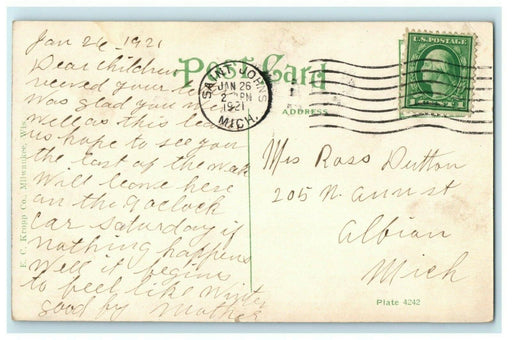 Jan 26 - 1921
Dear children
received your
was glad you
well as this
us hope to see you
the last of the weak
Will leave here
on the 9 oclock
car Saturday if
nothing happens
Well it begins
to feel like winter
good by Mother
Post Card
SAINT JOHNS
JAN 26
PM
1921
MICH.
U.S. POSTAGE
ADDRESS
Mrs Ross Dutton
205 N. Ann st
Albion
Mich
Plate 4242
E. C. Kropp Co., Milwaukee, Wis.